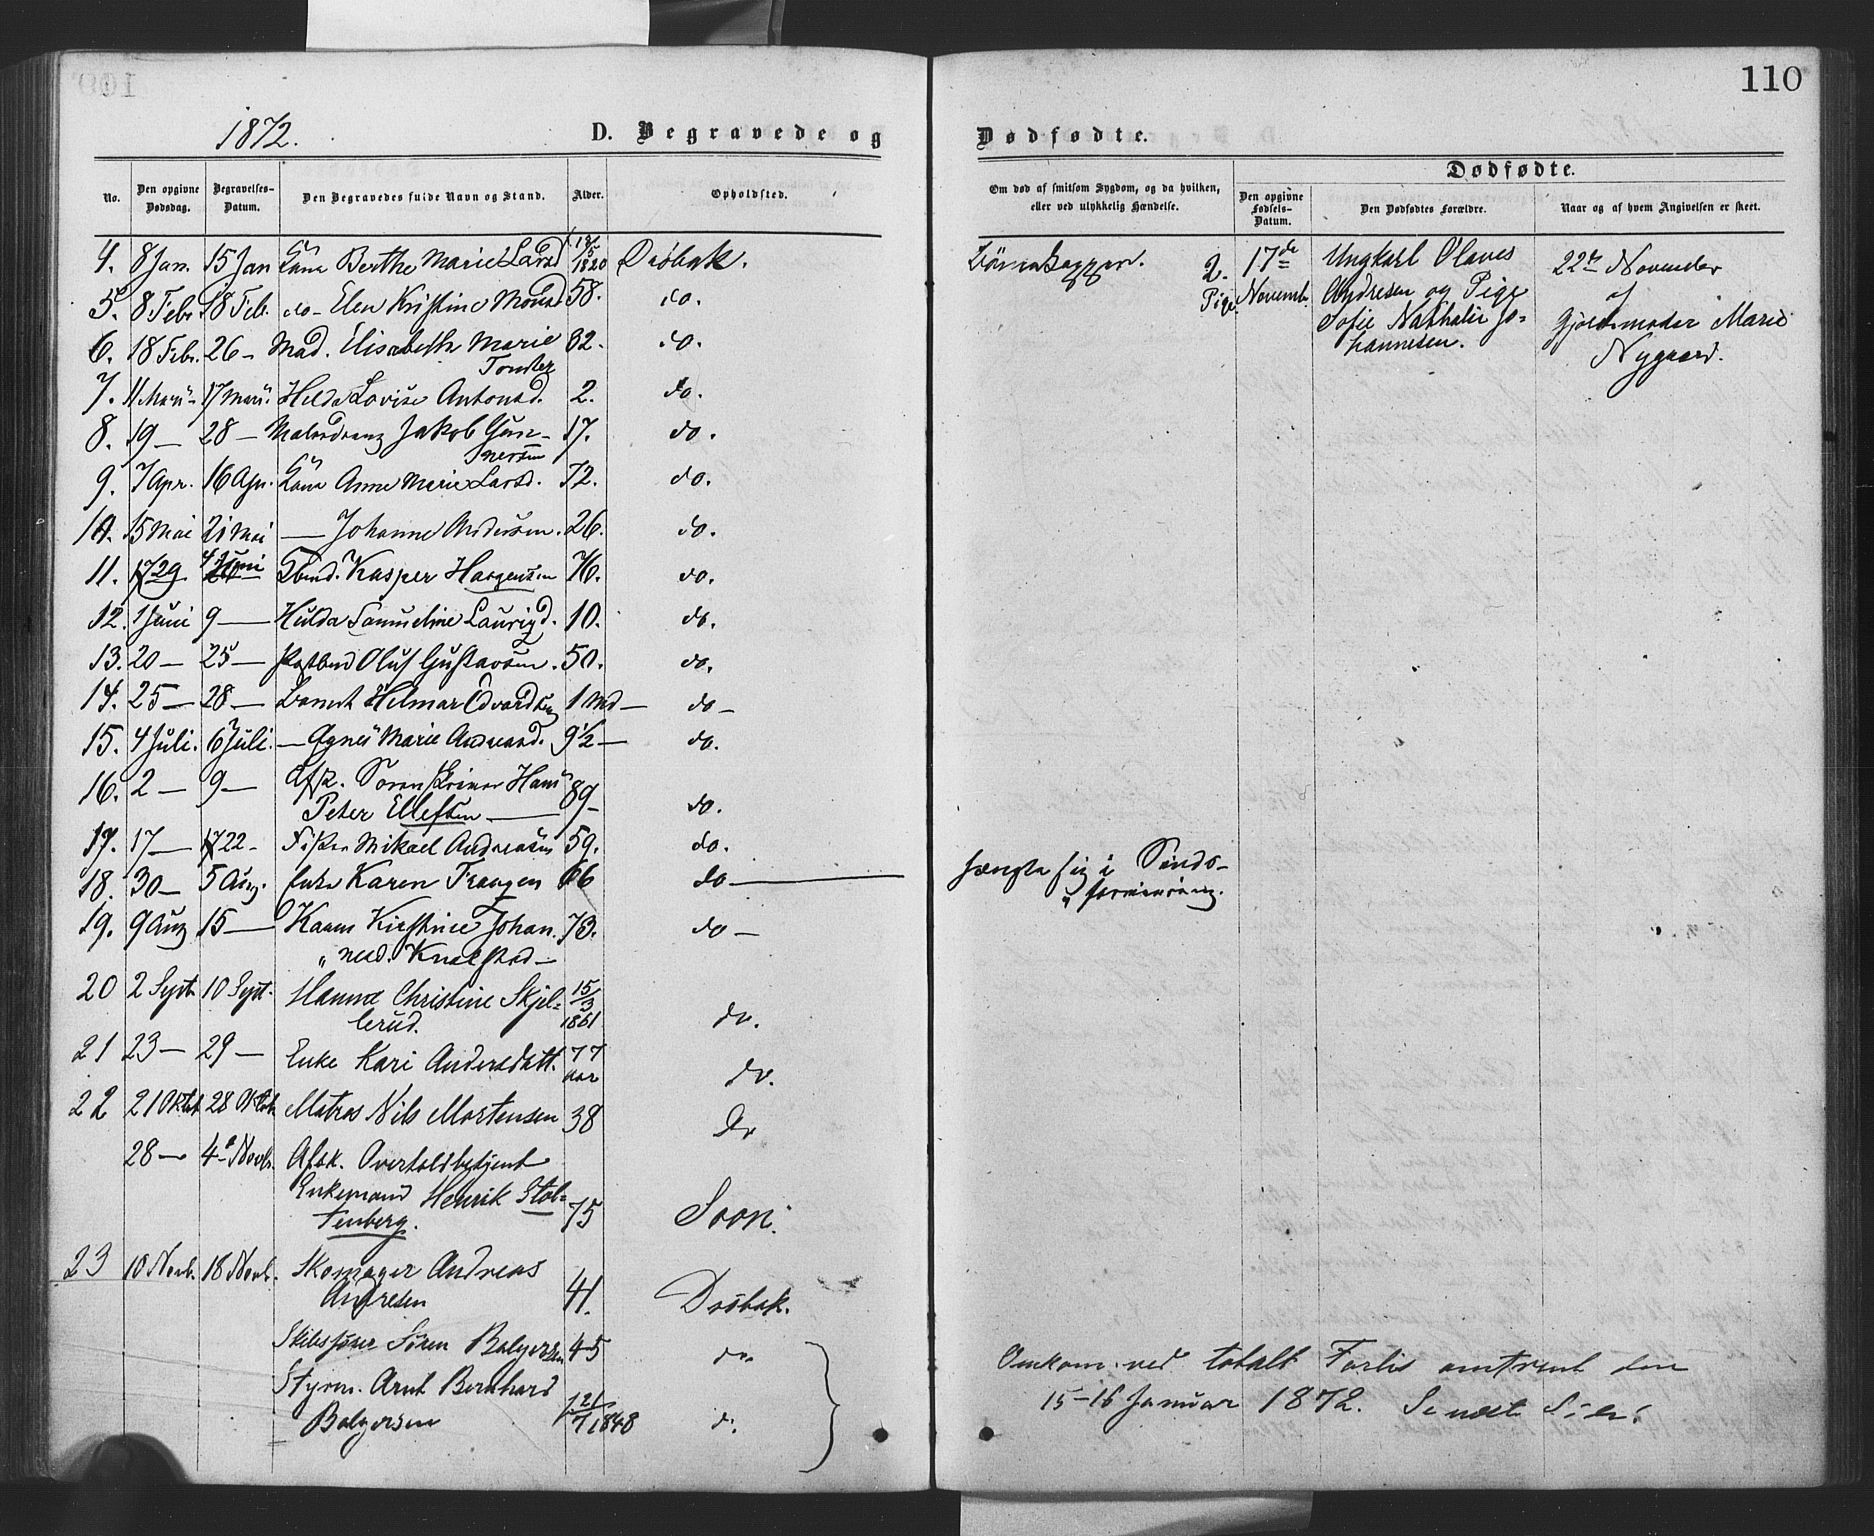 110
1872.
D. Begravede og Dødfødte.
No.
Den opgivne Dødsdag.
Begravelses-Datum.
Den Begravedes fulde Navn og Stand.
Alder.
Opholdsted.
Om død af smitsom Sygdom, og da hvilken, eller ved ulykkelig Hændelse.
Dødfødte.
Den opgivne Fødsels-Datum.
Den Dødfødtes Forældre.
Naar og af hvem Angivelsen er skeet.
4. 8 Jan. 15 Jan Kone Berthe Marie Larsd 1820 Drøbak.
5. 8 Febr 18 Feb. do- Elen Kristine Monsd 58. do.
6. 18 Febr. 26 - Mad. Elisabeth Marie 32. do.
7. 11 Marts - 17 Marts. Helda Lovise Antonsd. 2. do.
8. 19 — 28 — Malerdreng Jakob Gun- 17. do.
nersen
9. 7 Apr. 16 Apr. Kone Anne Marie Larsd. 72. do.
10. 15 Mai 21 Mai — Johanne Andersen. 26. do.
11. 29 4 Juni Kasper 76. do.
12. 1 Juni 9 — Hulda Samueline Lauritzd. 10. do.
13. 20 — 25 — Postbud Oluf Gustavsen. 50. do.
14. 25 — 28 — Barnet Hilmar Edvardsen 1 Md — do —
15. 4 Juli. 6 Juli. — Agnes Marie Andreasd. 9½ — do.
16. 2 — 9 — Hans 89 -
Peter Ellefsen — do.
17. 17 — 22 - Fisker Mikael Andreasen 59. do.
18. 30 — 5 Aug. Enke Karen Trangen 66 do —
19. 9 Aug 15 — Karen Kirstine Johan. 73. do —
20 2 Sept 10 Sept. Hanna Christine Skjel- 15/3
lerud. 1861 do.
21 23 — 29 — Enke Kari Andersdatt. 77
aar do.
22 21 Oktob 28 Oktob. Matros Nils Mortensen 38 Do
28 — 4de Novb. Afsk. Overtoldbetjent
Enkemand Henrik Stol-
tenberg. 75 Soon.
23 10 Novb. 18 Novb. Skomager Andreas
Andresen 41. Drøbak.
Skibsfører Sören Bolgersen 45 do
Styrm. Arnt Bernhard
Bolgersen 21/7 1848 do.
2. Pige 17de Novemb.
Ungkarl Olaves
Andresen og Pige
Sofie Nathalie Jo-
hannesen.
22de November
af
Gjordemoder Marie
Nygaard.
hængte sig i Sinds-
forvirring.
Omkom ved totalt Forlis omtrent den
15-16 Januar 1872.